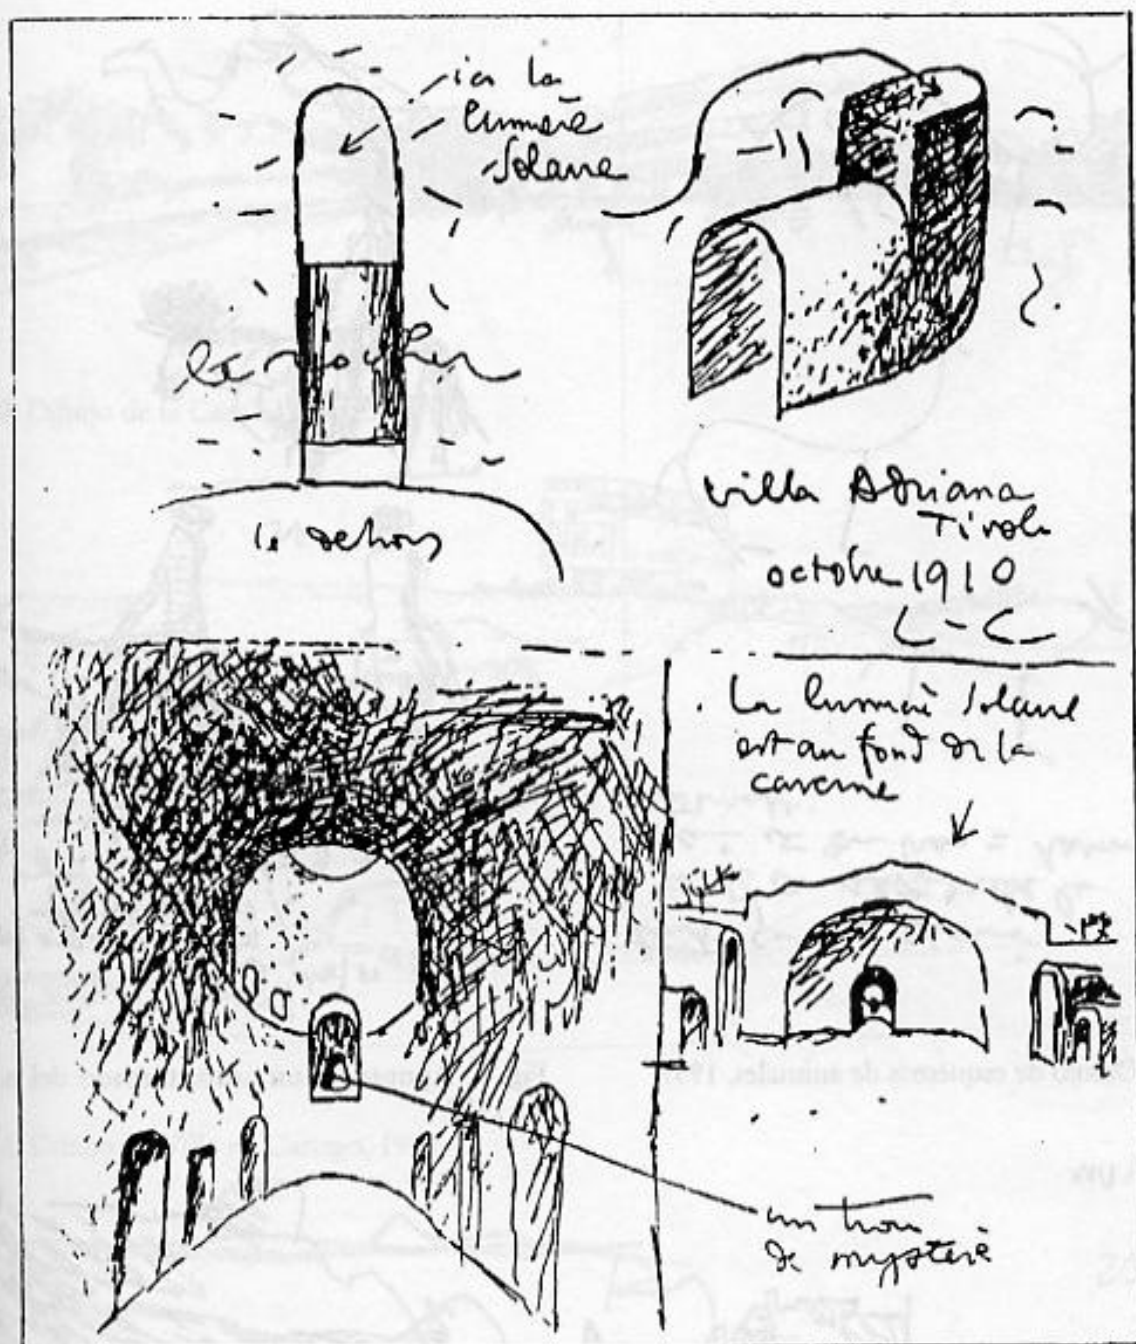 ici la
lumière
solaire
le rocher
le dehors
villa Adriana
Tivoli
octobre 1910
L-C-
. La lumière solaire
est au fond de la
caverne
un trou
de mystère